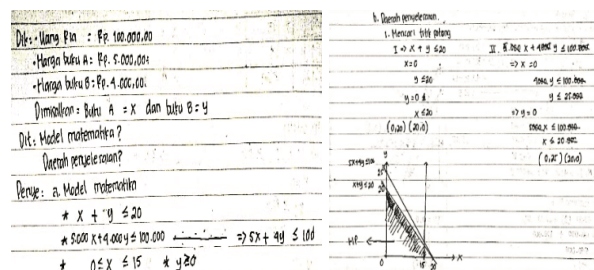 Dik: • Uang Ria : Rp. 100.000,00
• Harga buku A : Rp. 5.000,00
• Harga buku B : Rp. 4.000,00
Dimisalkan : Buku A = X dan buku B = y
Dit : Model matematika ?
Daerah penyelesaian?
Penye : a. Model matematika
* x + y ≤ 20
* 5.000 x + 4.000 y ≤ 100.000 => 5x + 4y ≤ 100
* 0 ≤ x ≤ 15 * y ≥ 0
b. Daerah penyelesaian.
1. Mencari titik potong
I => x + y ≤ 20
x = 0
y ≤ 20
y = 0
x ≤ 20
(0,20) (20,0)
II. 5.000 x + 4000 y ≤ 100.000
=> x = 0
4000 y ≤ 100.000
=> y = 0
5000 x ≤ 100.000
(0,25) (20,0)
y
x+y≤20
25
20
HP
0
15
20
x